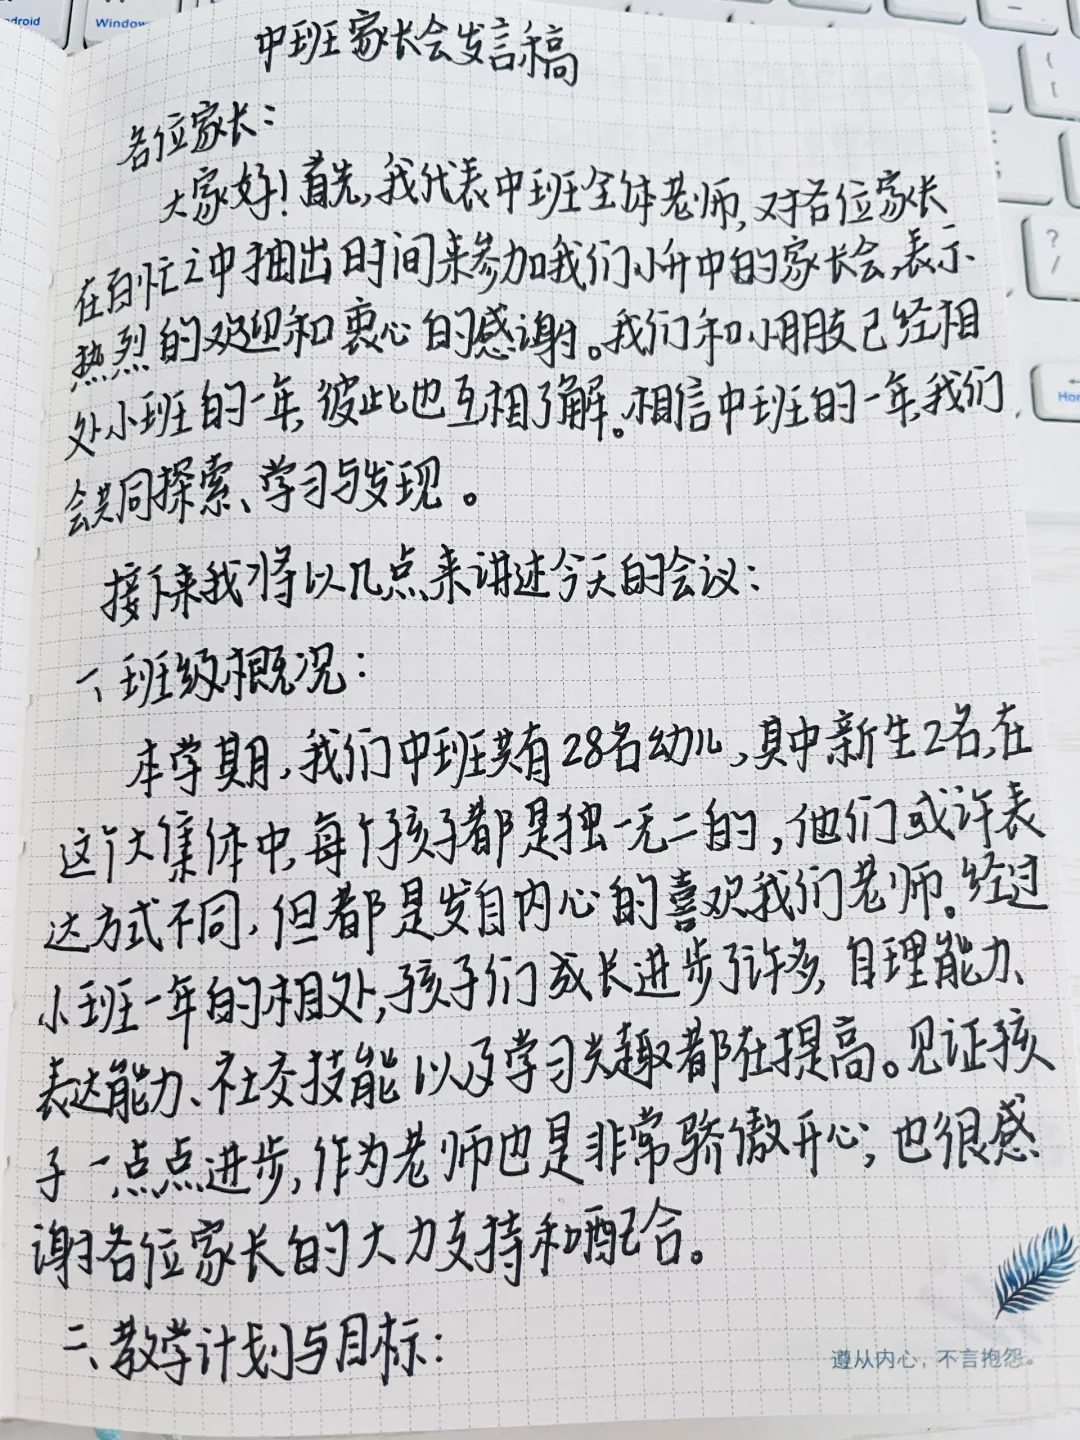 android
Windows
中班家长会发言稿
各位家长:
大家好!首先,我代表中班全体老师,对各位家长
在百忙之中抽出时间来参加我们小升中的家长会,表示
热烈的欢迎和衷心的感谢。我们和小朋友已经相
处小班的一年,彼此也互相了解。相信中班的一年,我们
会共同探索、学习与发现。
接下来我将以几点来讲述今天的会议:
一、班级概况:
本学期,我们中班共有28名幼儿,其中新生2名,在
这个大集体中,每个孩子都是独一无二的,他们或许表
达方式不同,但都是发自内心的喜欢我们老师。经过
小班一年的相处,孩子们成长进步了许多,自理能力、
表达能力、社交技能以及学习兴趣都在提高。见证孩
子一点点进步,作为老师也是非常骄傲开心,也很感
谢各位家长的大力支持和配合。
二、教学计划与目标:
遵从内心,不言抱怨。
? /
Hom